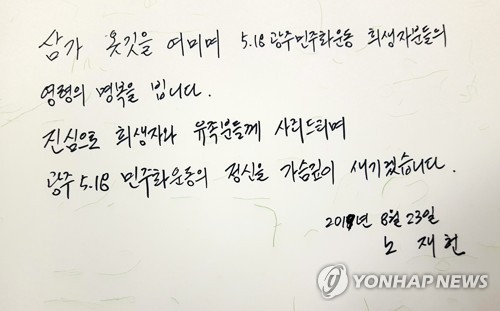 삼가 옷깃을 여미며 5.18 광주 민주화운동 희생자분들의
영령의 명복을 빕니다.
진심으로 희생자와 유족분들께 사죄드리며
광주 5.18 민주화운동의 정신을 가슴깊이 새기겠습니다.
2019년 8월 23일
노 재 헌
YONHAP NEWS